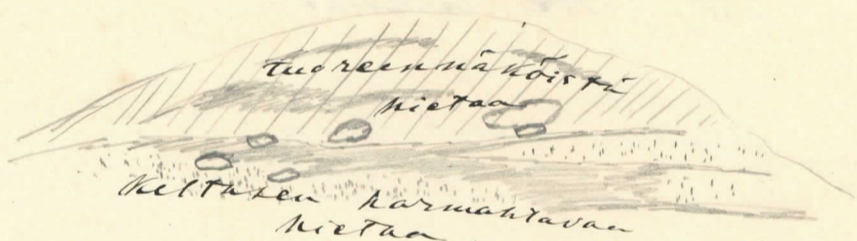 tuoreennäköistä
hietaa
Keltasen harmahtavaa
hietaa